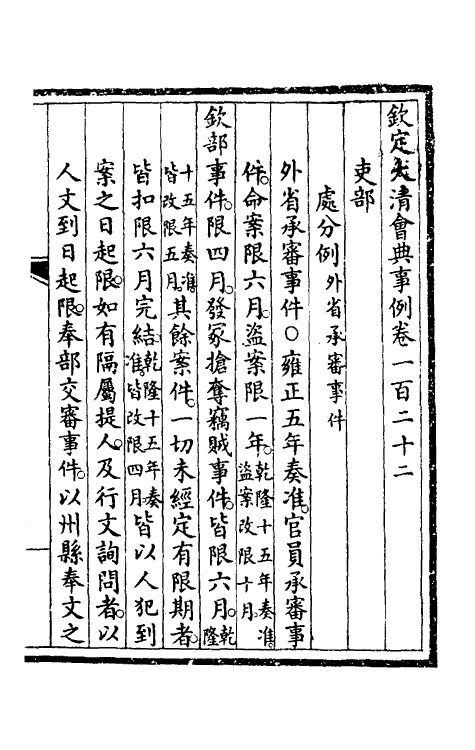 欽定大清會典事例卷一百二十二
吏部
處分例外省承審事件
外省承審事件○雍正五年奏准。官員承審事
件。命案限六月。盜案限一年。乾隆十五年奏准。盜案改限十月。
欽部事件。限四月。發冢搶奪竊賊事件。皆限六月。乾隆
十五年奏准。皆改限五月。其餘案件。一切未經定有限期者。
皆扣限六月完結。乾隆十五年奏准。皆改限四月。皆以人犯到
案之日起限。如有隔屬提人。及行文詢問者。以
人文到日起限。奉部交審事件。以州縣奉文之